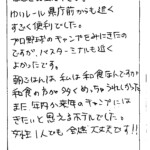 ゆいレール県庁前からも近く
すごく便利でした。
プロ野球のキャンプをみにきたの
ですが、バスターミナルも近く
よかったです。
朝ごはんは私は和食なんですが
和食のおかず多くめっちゃうれしかった
また年内か来年のキャンプには
きたいと思えるホテルでした。
女性1人でも全然大丈夫です!!